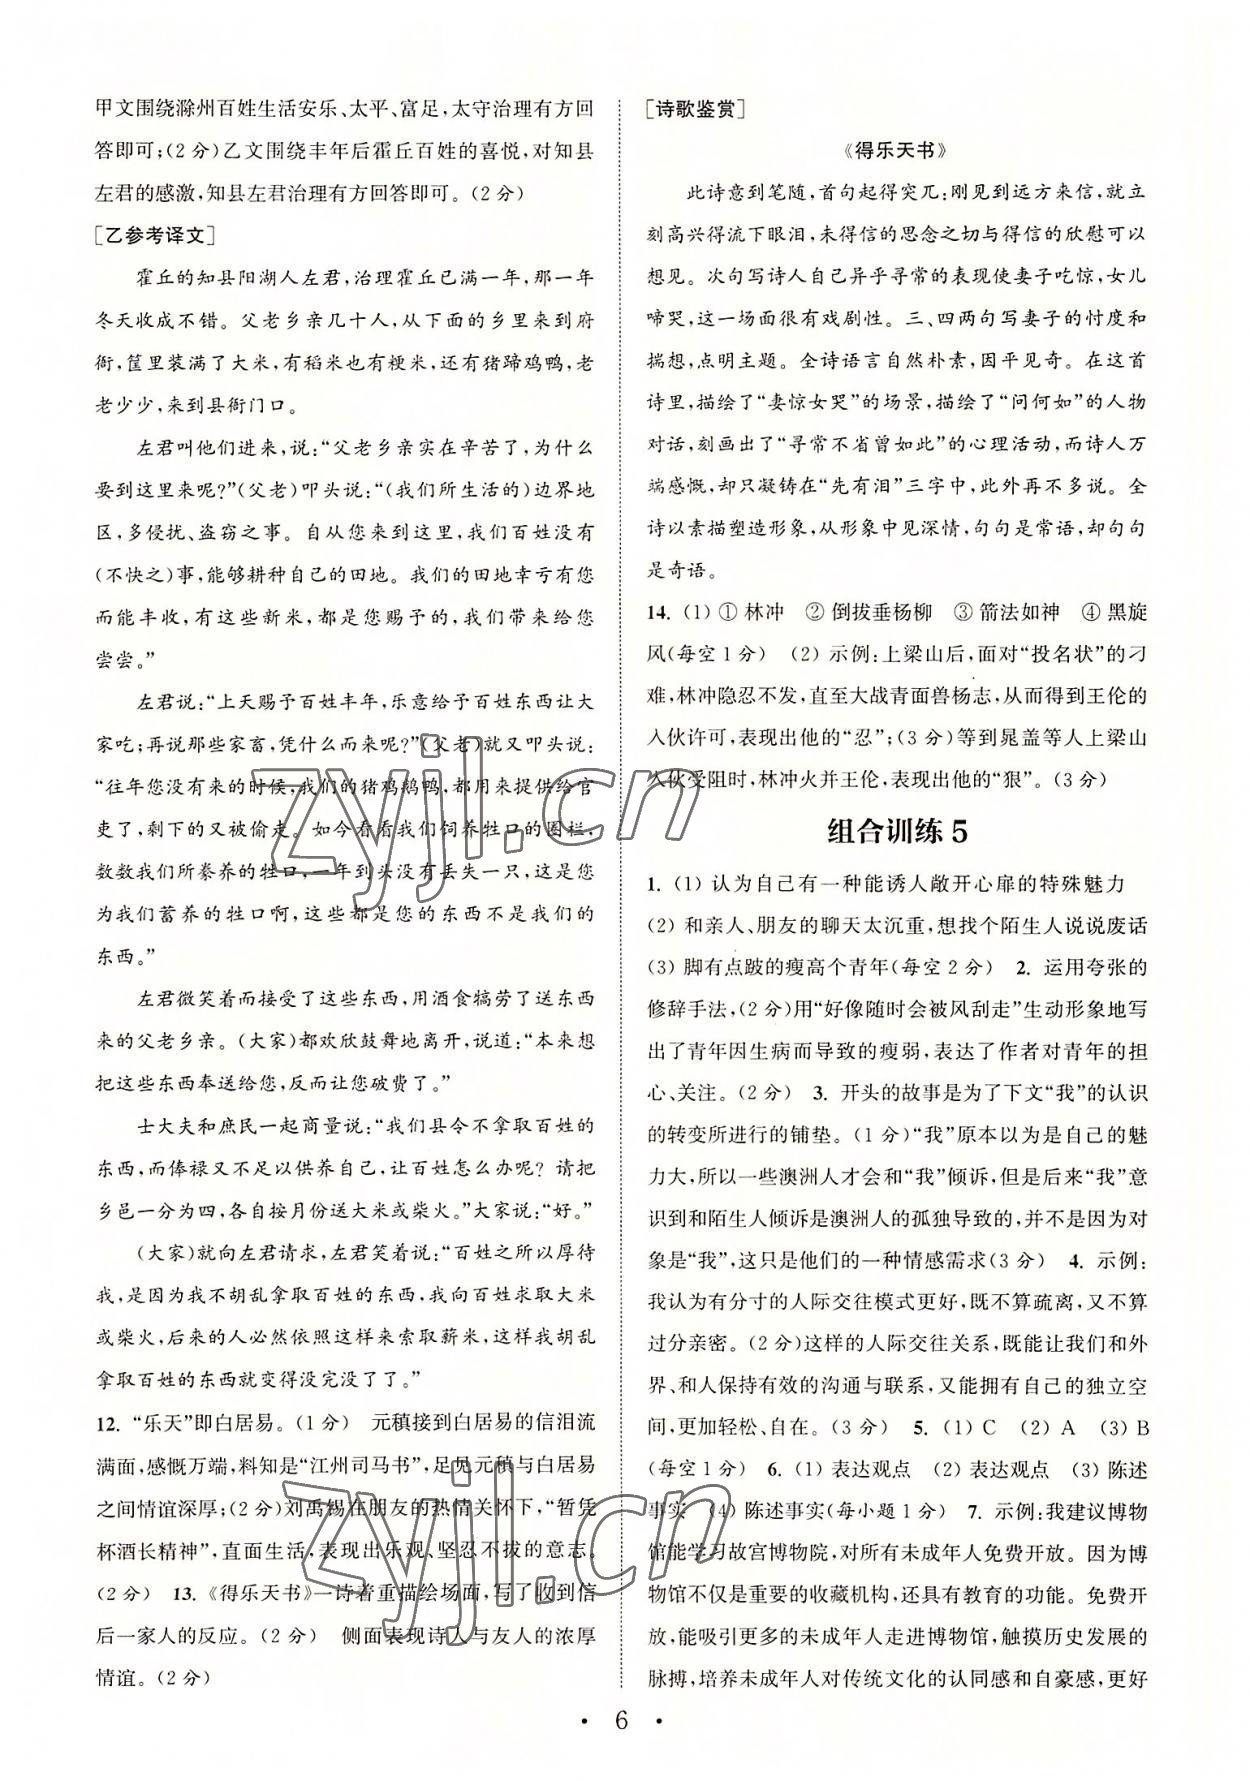 甲文围绕滁州百姓生活安乐、太平、富足,太守治理有方回
答即可;(2分)乙文围绕丰年后霍丘百姓的喜悦,对知县
左君的感激,知县左君治理有方回答即可。(2分)
[乙参考译文]
霍丘的知县阳湖人左君,治理霍丘已满一年,那一年
冬天收成不错。父老乡亲几十人,从下面的乡里来到府
衙,筐里装满了大米,有稻米也有粳米,还有猪蹄鸡鸭,老
老少少,来到县衙门口。
左君叫他们进来,说:“父老乡亲实在辛苦了,为什么
要到这里来呢?”(父老)叩头说:“(我们所生活的)边界地
区,多侵扰、盗窃之事。自从您来到这里,我们百姓没有
(不快之)事,能够耕种自己的田地。我们的田地幸亏有您
而能丰收,有这些新米,都是您赐予的,我们带来给您
尝尝。”
左君说:“上天赐予百姓丰年,乐意给予百姓东西让大
家吃;再说那些家畜,凭什么而来呢?”(父老)就又叩头说:
“往年您没有来的时候,我们的猪鸡鹅鸭,都用来提供给官
吏了,剩下的又被偷走。如今看看我们饲养牲口的圈栏,
数数我们所豢养的牲口,一年到头没有丢失一只,这是您
为我们蓄养的牲口啊,这些都是您的东西不是我们的
东西。”
左君微笑着而接受了这些东西,用酒食犒劳了送东西
来的父老乡亲。(大家)都欢欣鼓舞地离开,说道:“本来想
把这些东西奉送给您,反而让您破费了。”
士大夫和庶民一起商量说:“我们县令不拿取百姓的
东西,而俸禄又不足以供养自己,让百姓怎么办呢?请把
乡邑一分为四,各自按月份送大米或柴火。”大家说:“好。”
(大家)就向左君请求,左君笑着说:“百姓之所以厚待
我,是因为我不胡乱拿取百姓的东西,我向百姓求取大米
或柴火,后来的人必然依照这样来索取薪米,这样我胡乱
拿取百姓的东西就变得没完没了了。”
12. “乐天”即白居易。(1分) 元稹接到白居易的信泪流
满面,感慨万端,料知是“江州司马书”,足见元稹与白居易
之间情谊深厚;(2分)刘禹锡在朋友的热情关怀下,“暂凭
杯酒长精神”,直面生活,表现出乐观、坚忍不拔的意志。
(2分) 13.《得乐天书》一诗着重描绘场面,写了收到信
后一家人的反应。(2分) 侧面表现诗人与友人的浓厚
情谊。(2分)
[诗歌鉴赏]
《得乐天书》
此诗意到笔随,首句起得突兀:刚见到远方来信,就立
刻高兴得流下眼泪,未得信的思念之切与得信的欣慰可以
想见。次句写诗人自己异乎寻常的表现使妻子吃惊,女儿
啼哭,这一场面很有戏剧性。三、四两句写妻子的忖度和
揣想,点明主题。全诗语言自然朴素,因平见奇。在这首
诗里,描绘了“妻惊女哭”的场景,描绘了“问何如”的人物
对话,刻画出了“寻常不省曾如此”的心理活动,而诗人万
端感慨,却只凝铸在“先有泪”三字中,此外再不多说。全
诗以素描塑造形象,从形象中见深情,句句是常语,却句句
是奇语。
14. (1) ① 林冲 ② 倒拔垂杨柳 ③ 箭法如神 ④ 黑旋
风(每空1分) (2) 示例:上梁山后,面对“投名状”的刁
难,林冲隐忍不发,直至大战青面兽杨志,从而得到王伦的
入伙许可,表现出他的“忍”;(3分)等到晁盖等人上梁山
入伙受阻时,林冲火并王伦,表现出他的“狠”。(3分)
组合训练5
1. (1) 认为自己有一种能诱人敞开心扉的特殊魅力
(2) 和亲人、朋友的聊天太沉重,想找个陌生人说说废话
(3) 脚有点跛的瘦高个青年(每空2分) 2. 运用夸张的
修辞手法,(2分)用“好像随时会被风刮走”生动形象地写
出了青年因生病而导致的瘦弱,表达了作者对青年的担
心、关注。(2分) 3. 开头的故事是为了下文“我”的认识
的转变所进行的铺垫。(1分)“我”原本以为是自己的魅
力大,所以一些澳洲人才会和“我”倾诉,但是后来“我”意
识到和陌生人倾诉是澳洲人的孤独导致的,并不是因为对
象是“我”,这只是他们的一种情感需求(3分) 4. 示例:
我认为有分寸的人际交往模式更好,既不算疏离,又不算
过分亲密。(2分)这样的人际交往关系,既能让我们和外
界、和人保持有效的沟通与联系,又能拥有自己的独立空
间,更加轻松、自在。(3分) 5. (1) C (2) A (3) B
(每空1分) 6. (1) 表达观点 (2) 表达观点 (3) 陈述
事实 (4) 陈述事实(每小题1分) 7. 示例:我建议博物
馆能学习故宫博物院,对所有未成年人免费开放。因为博
物馆不仅是重要的收藏机构,还具有教育的功能。免费开
放,能吸引更多的未成年人走进博物馆,触摸历史发展的
脉搏,培养未成年人对传统文化的认同感和自豪感,更好
· 6 ·
zyjl.cn
zyjl.cn